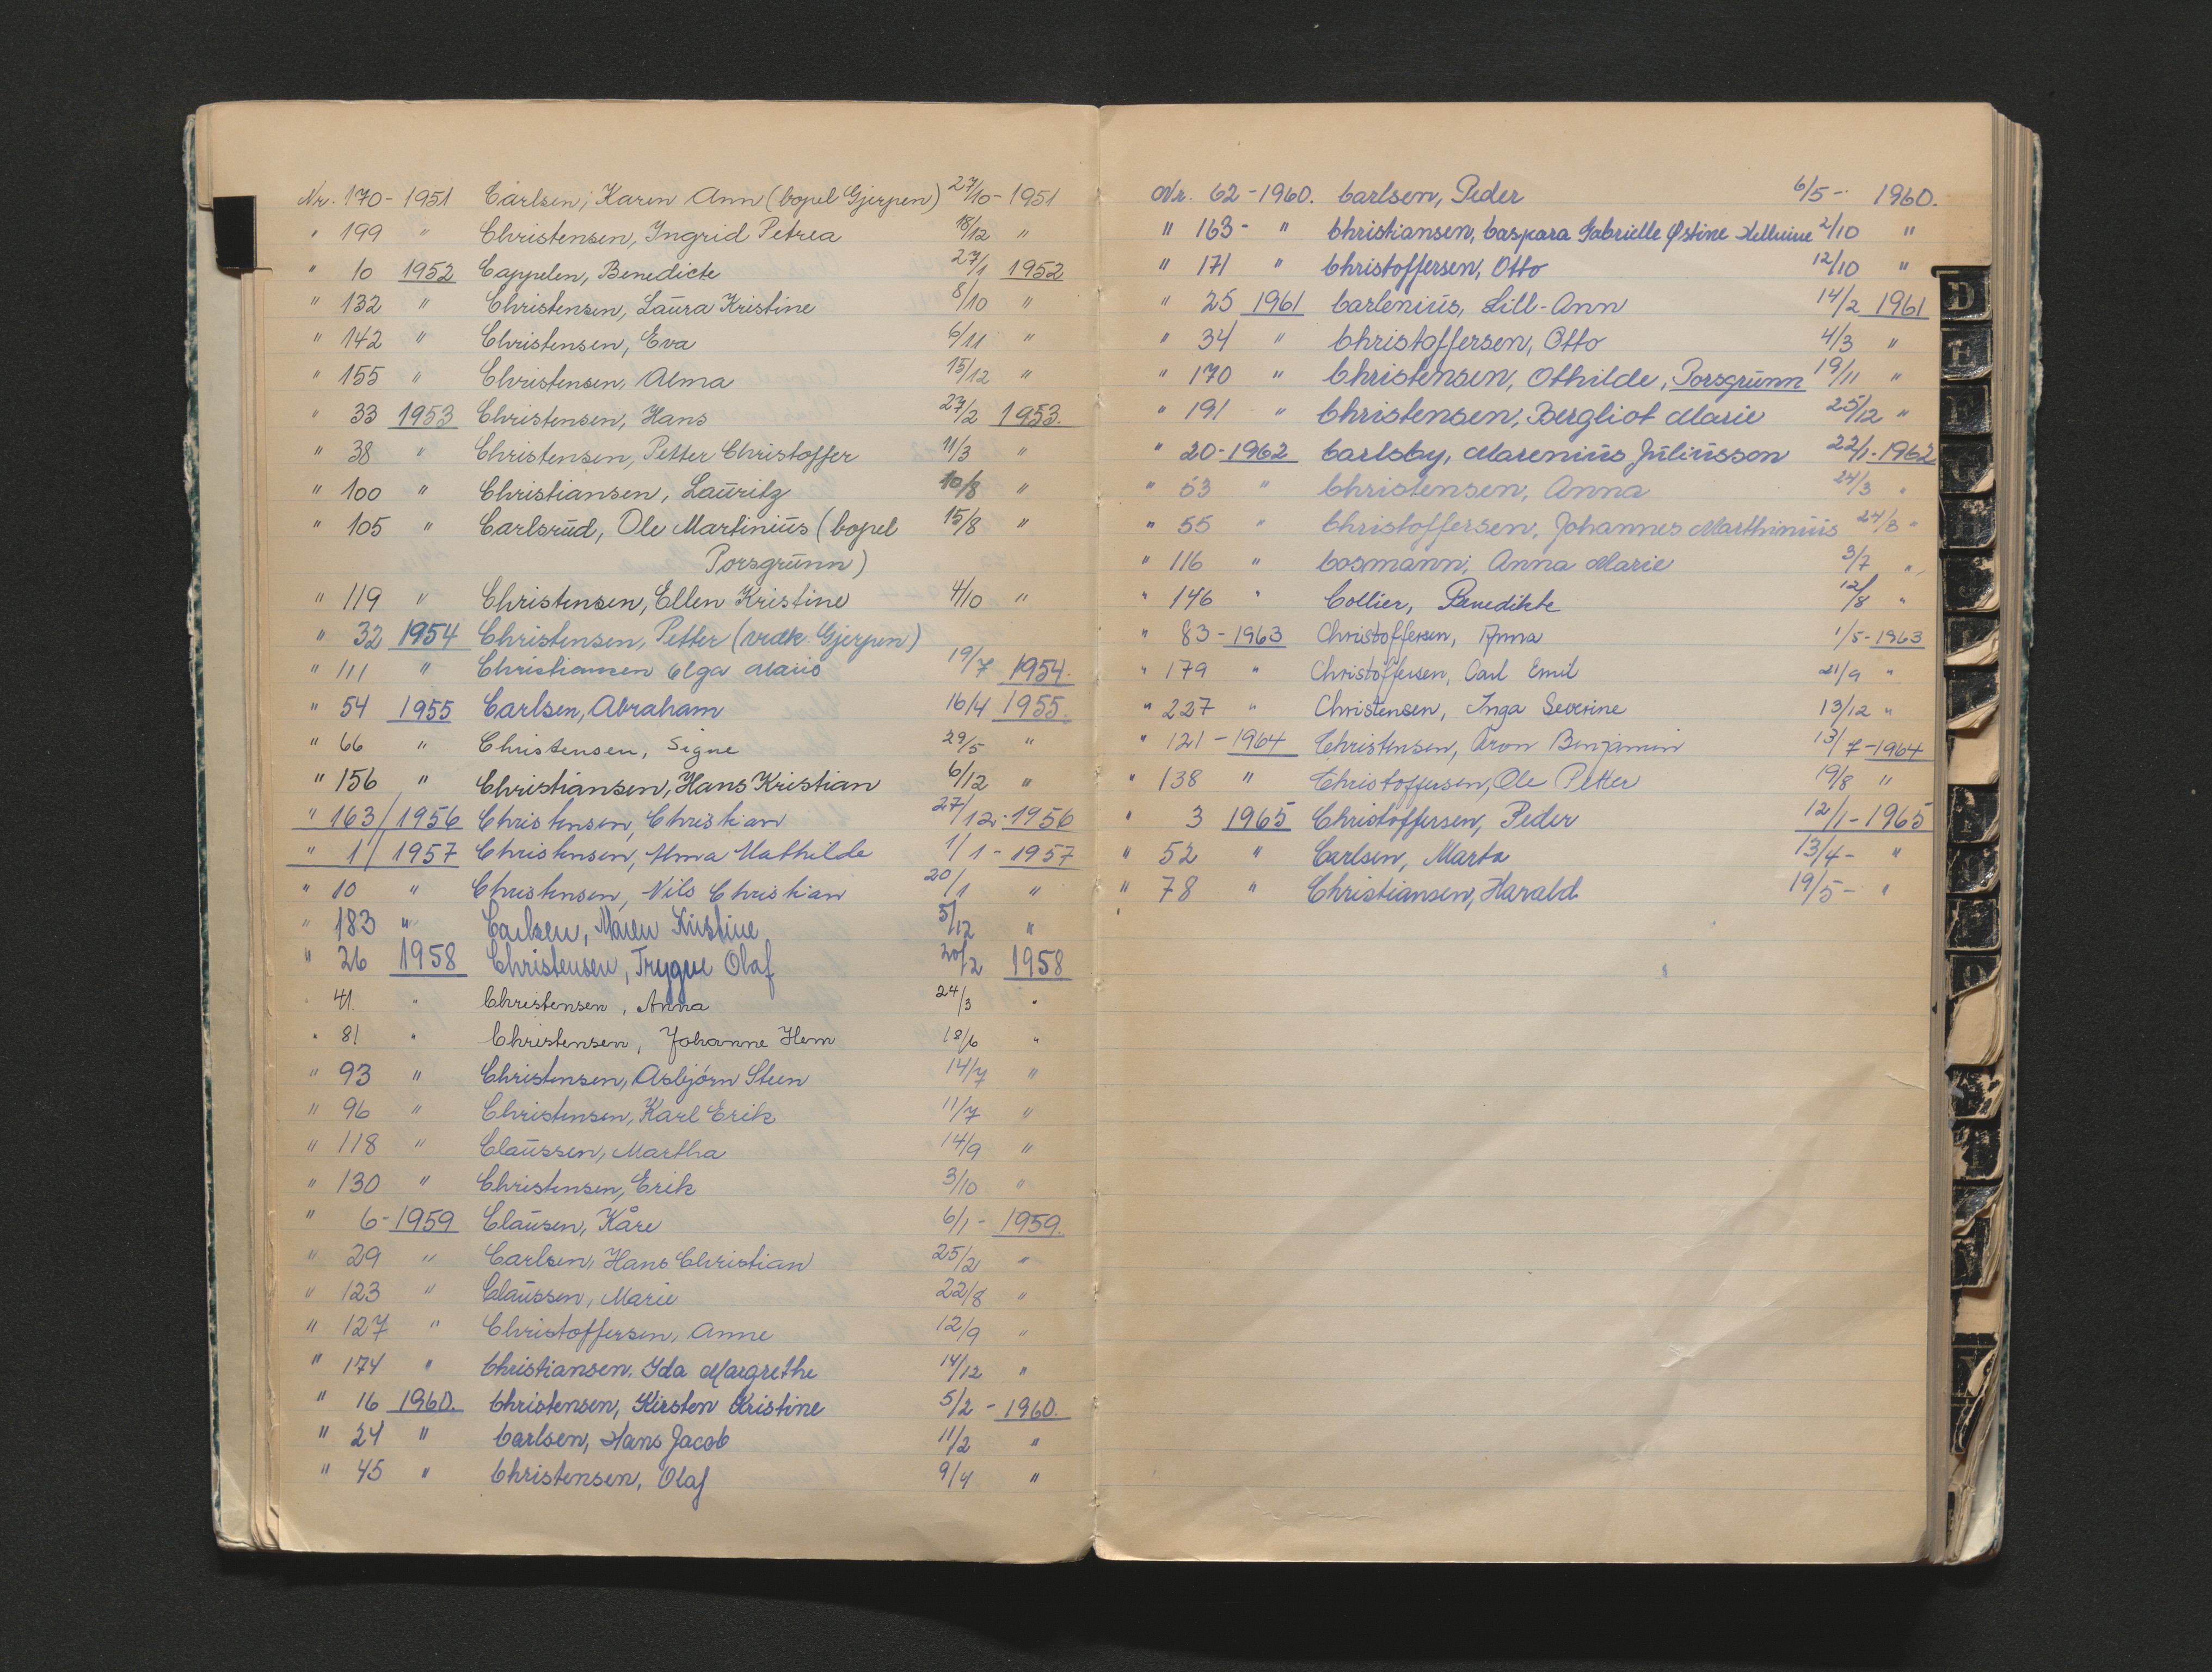 Nr. 170 - 1951 Carlsen, Karen Ann (bopel Gjerpen) 27/10 - 1951
" 199 " Christensen, Ingrid Petrea 18/12 "
" 10 1952 Cappelen, Benedicte 27/1 1952
" 132 " Christensen, Laura Kristine 8/10 "
" 142 " Christensen, Eva 6/11 "
" 155 " Christensen, Alma 15/12 "
" 33 1953 Christensen, Hans 27/2 1953.
" 38 " Christensen, Petter Christoffer 11/3 "
" 100 " Christiansen, Lauritz 10/8 "
" 105 " Carlsrud, Ole Martinius (bopel 15/8 "
Porsgrunn)
" 119 " Christensen, Ellen Kristine 4/10 "
" 32 1954 Christensen, Petter (vedk. Gjerpen)
" 111 " Christiansen Olga Marie 19/7 1954.
" 54 1955 Carlsen, Abraham 16/4 1955.
" 66 " Christensen, Signe 29/5 "
" 156 " Christiansen, Hans Kristian 6/12 "
" 163/1956 Christensen, Christian 27/12 - 1956
" 1/1957 Christensen, Alma Mathilde 1/1 - 1957
" 10 " Christensen, Nils Christian 20/1 "
" 183 " Carlsen, Maren Kristine 5/12 "
" 26 1958 Christensen, Trygve Olaf 20/2 1958
" 41. " Christensen, Anna 24/3 "
" 81 " Christensen, Johanne Hem 18/6 "
" 93 " Christensen, Asbjörn Steen 14/7 "
" 96 " Christensen, Karl Erik 11/7 "
" 118 " Claussen, Martha 14/9 "
" 130 " Christensen, Erik 3/10 "
" 6 - 1959 Clausen, Kåre 6/1 - 1959.
" 29 " Carlsen, Hans Christian 25/2 "
" 123 " Claussen, Marie 22/8 "
" 127 " Christoffersen, Anne 12/9 "
" 174 " Christiansen, Ida Margrethe 14/12 "
" 16 1960. Christensen, Kirsten Kristine 5/2 - 1960.
" 24 " Carlsen, Hans Jacob 11/2 "
" 45 " Christensen, Olaf 9/4 "
Nr. 62 - 1960. Carlsen, Peder 6/5 - 1960.
" 163 - " Christiansen, Caspara Gabrielle Østine 2/10 "
" 171 " Christoffersen, Otto 12/10 "
" 25 1961 Carlenius, Lill-Ann 14/2 1961
" 34 " Christoffersen, Otto 4/3 "
" 170 " Christensen, Othilde, Porsgrunn 19/11 "
" 191 " Christensen, Bergliot Marie 25/12 "
" 20 - 1962 Carlsby, Marenius Juliusson 22/1 - 1962
" 53 " Christensen, Anna 24/3 "
" 55 " Christoffersen, Johannes Marthinius 24/3 "
" 116 " Cosmann, Anna Marie 3/7 "
" 146 " Collier, Benedikte 12/8 "
" 83 - 1963 Christoffersen, Anna 1/5 - 1963
" 179 " Christoffersen, Carl Emil 21/9 "
" 227 " Christensen, Inga Severine 13/12 "
" 121 - 1964 Christensen, Aron Benjamin 13/7 - 1964
" 138 " Christoffersen, Ole Petter 19/8 "
" 3 1965 Christoffersen, Peder 12/1 - 1965
" 52 " Carlsen, Marta 13/4 - "
" 78 " Christiansen, Harald 19/5 - "
D
E
F
G
H